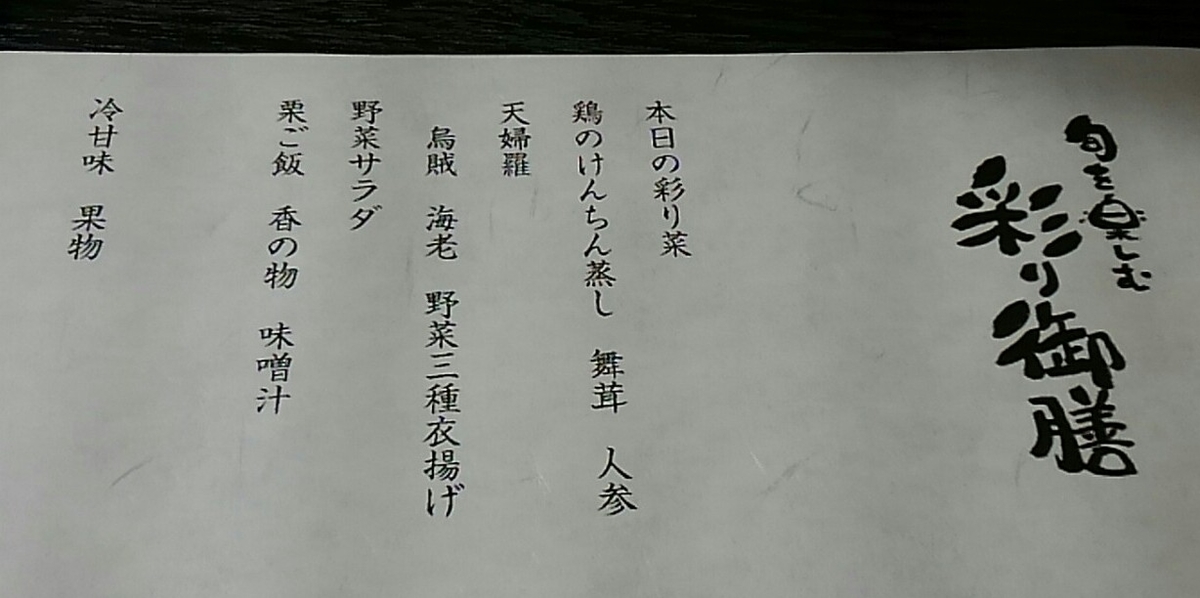 旬を楽しむ
彩り御膳
本日の彩り菜
鶏のけんちん蒸し　舞茸　人参
天婦羅
烏賊　海老　野菜三種衣揚げ
野菜サラダ
栗ご飯　香の物　味噌汁
冷甘味　果物